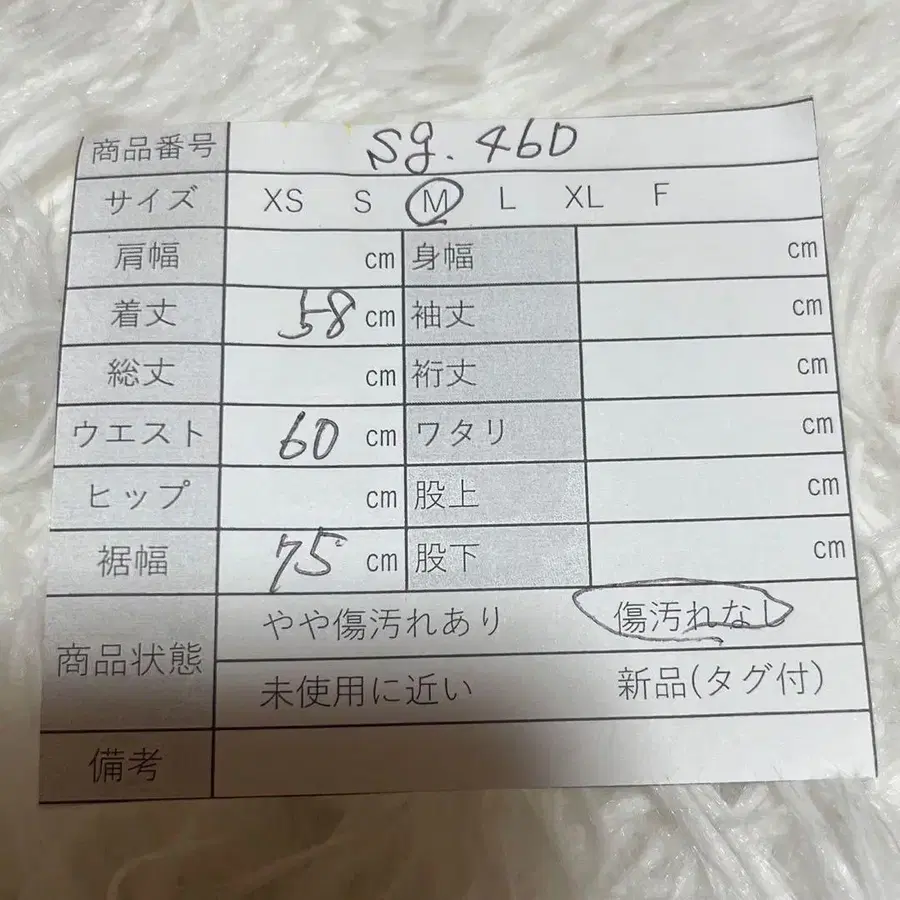 商品番号 sg.460
サイズ XS S M L XL F
肩幅 cm 身幅 cm
着丈 58 cm 袖丈 cm
総丈 cm 裄丈 cm
ウエスト 60 cm ワタリ cm
ヒップ cm 股上 cm
裾幅 75 cm 股下 cm
商品状態 やや傷汚れあり 傷汚れなし
未使用に近い 新品(タグ付)
備考